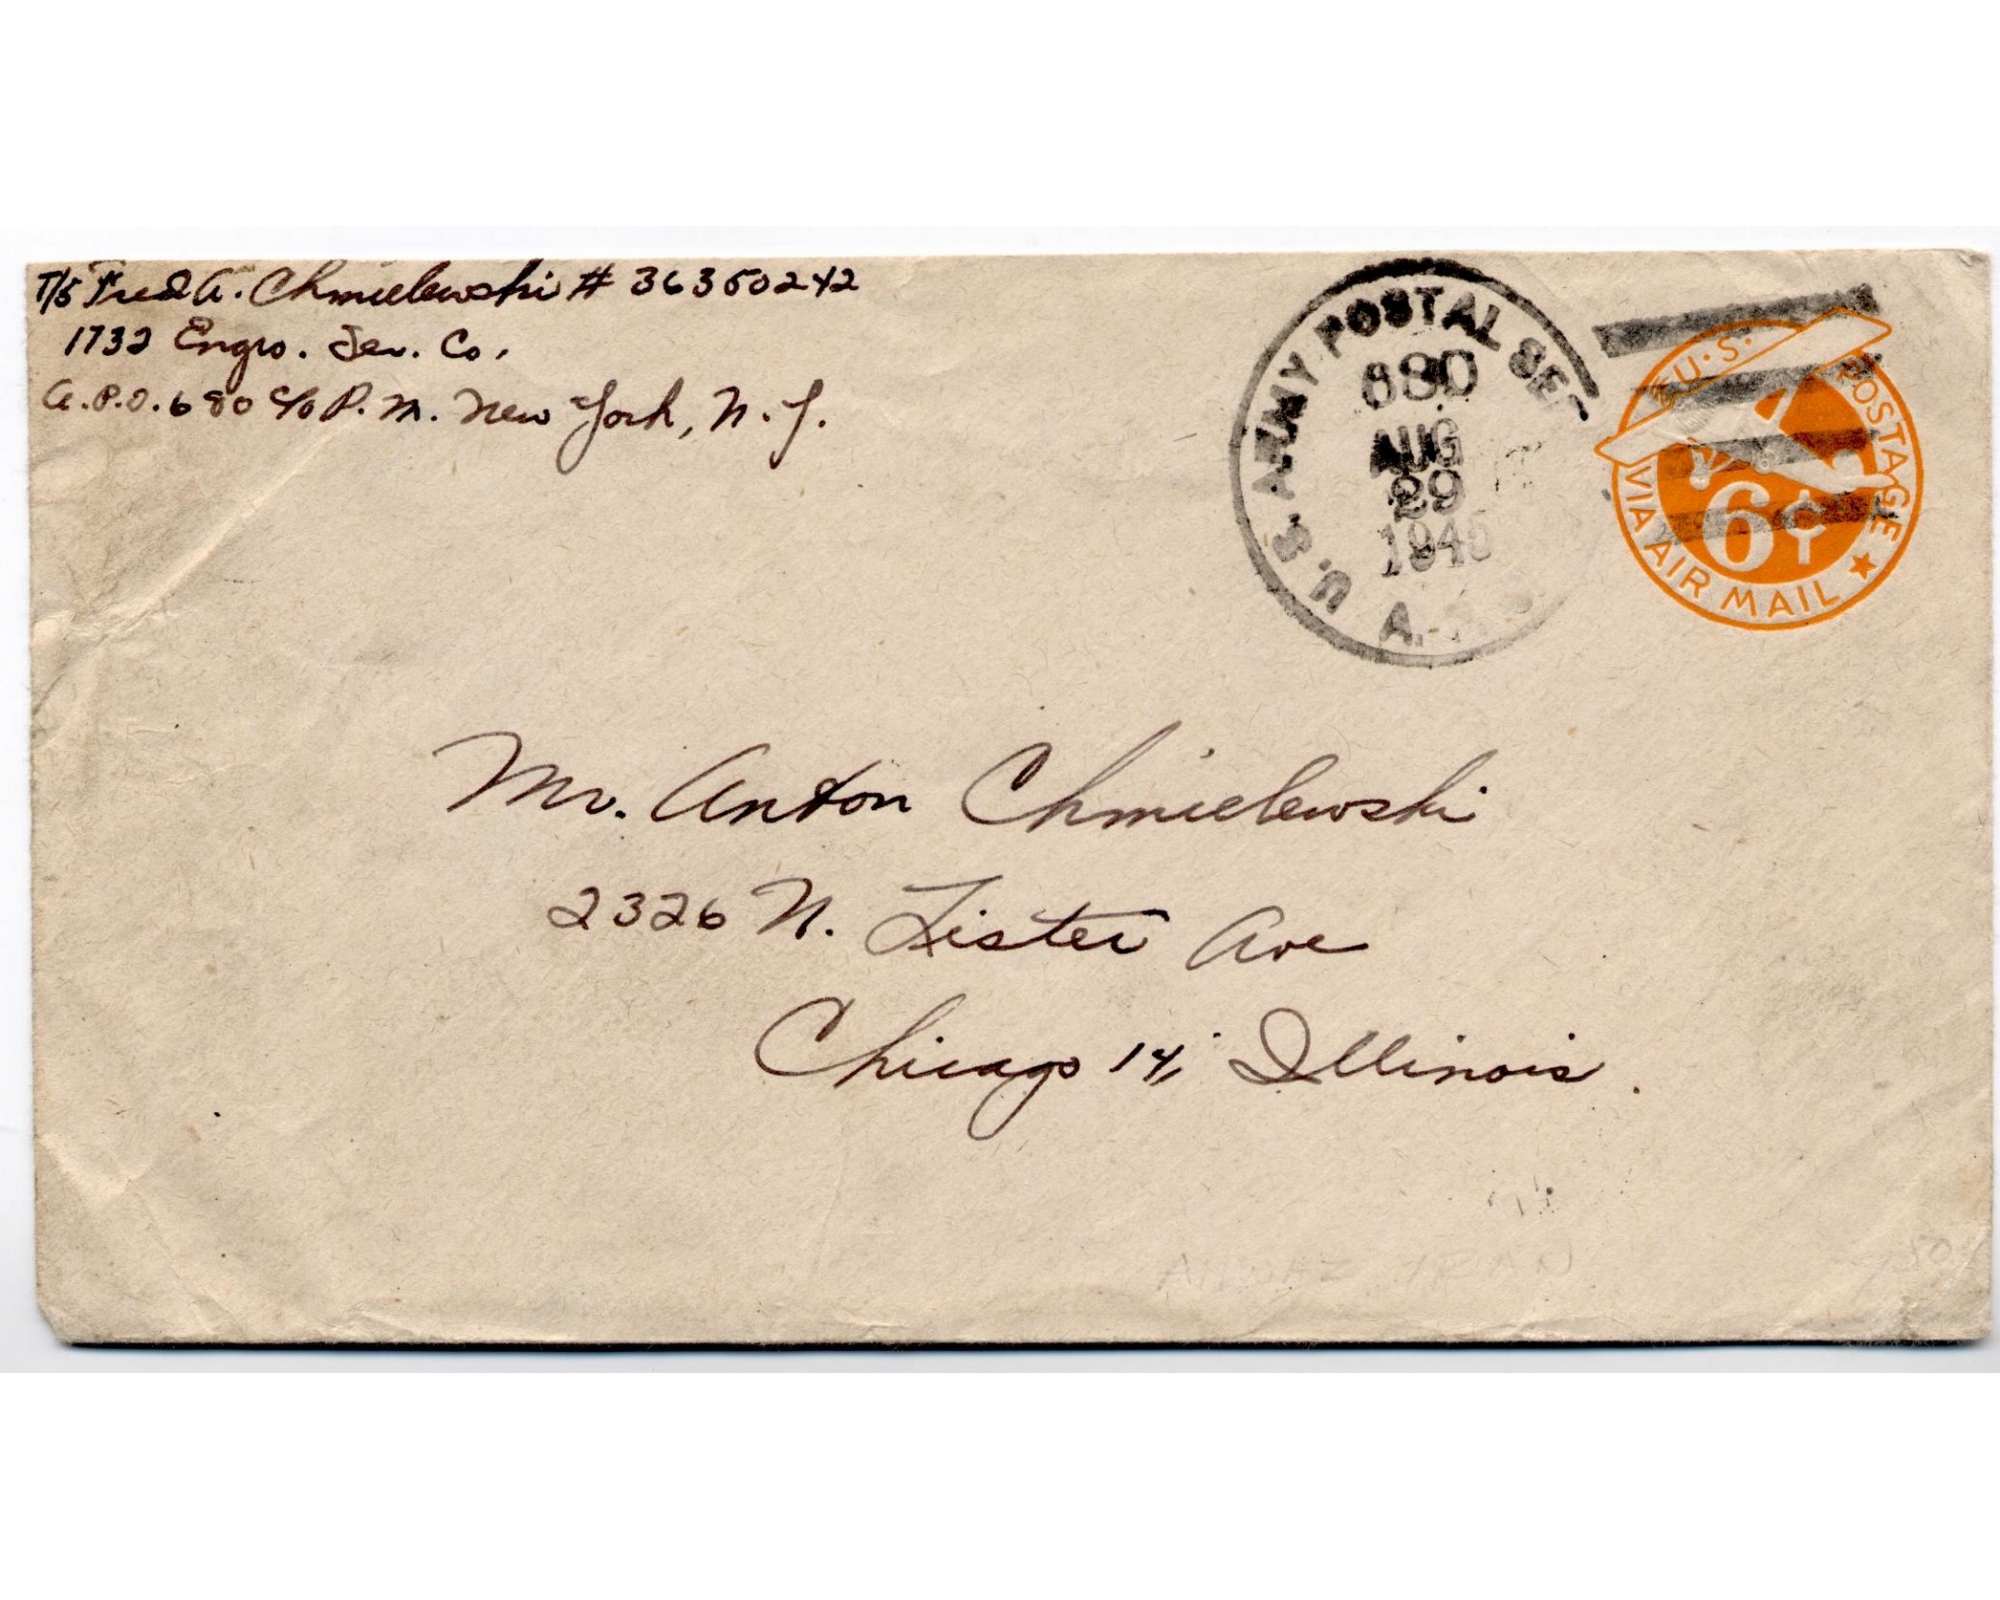 T/5 Fred A. Chmielewski # 36350242
1732 Engrs. Ser. Co.
A.P.O. 680 c/o P.M. New York, N.Y.
U.S. ARMY POSTAL SE
680
AUG
29
1945
A.
U.S. POSTAGE
6¢
VIA AIR MAIL
Mr. Anton Chmielewski
2326 N. Lister Ave
Chicago 14, Illinois.
AHWAZ IRAN